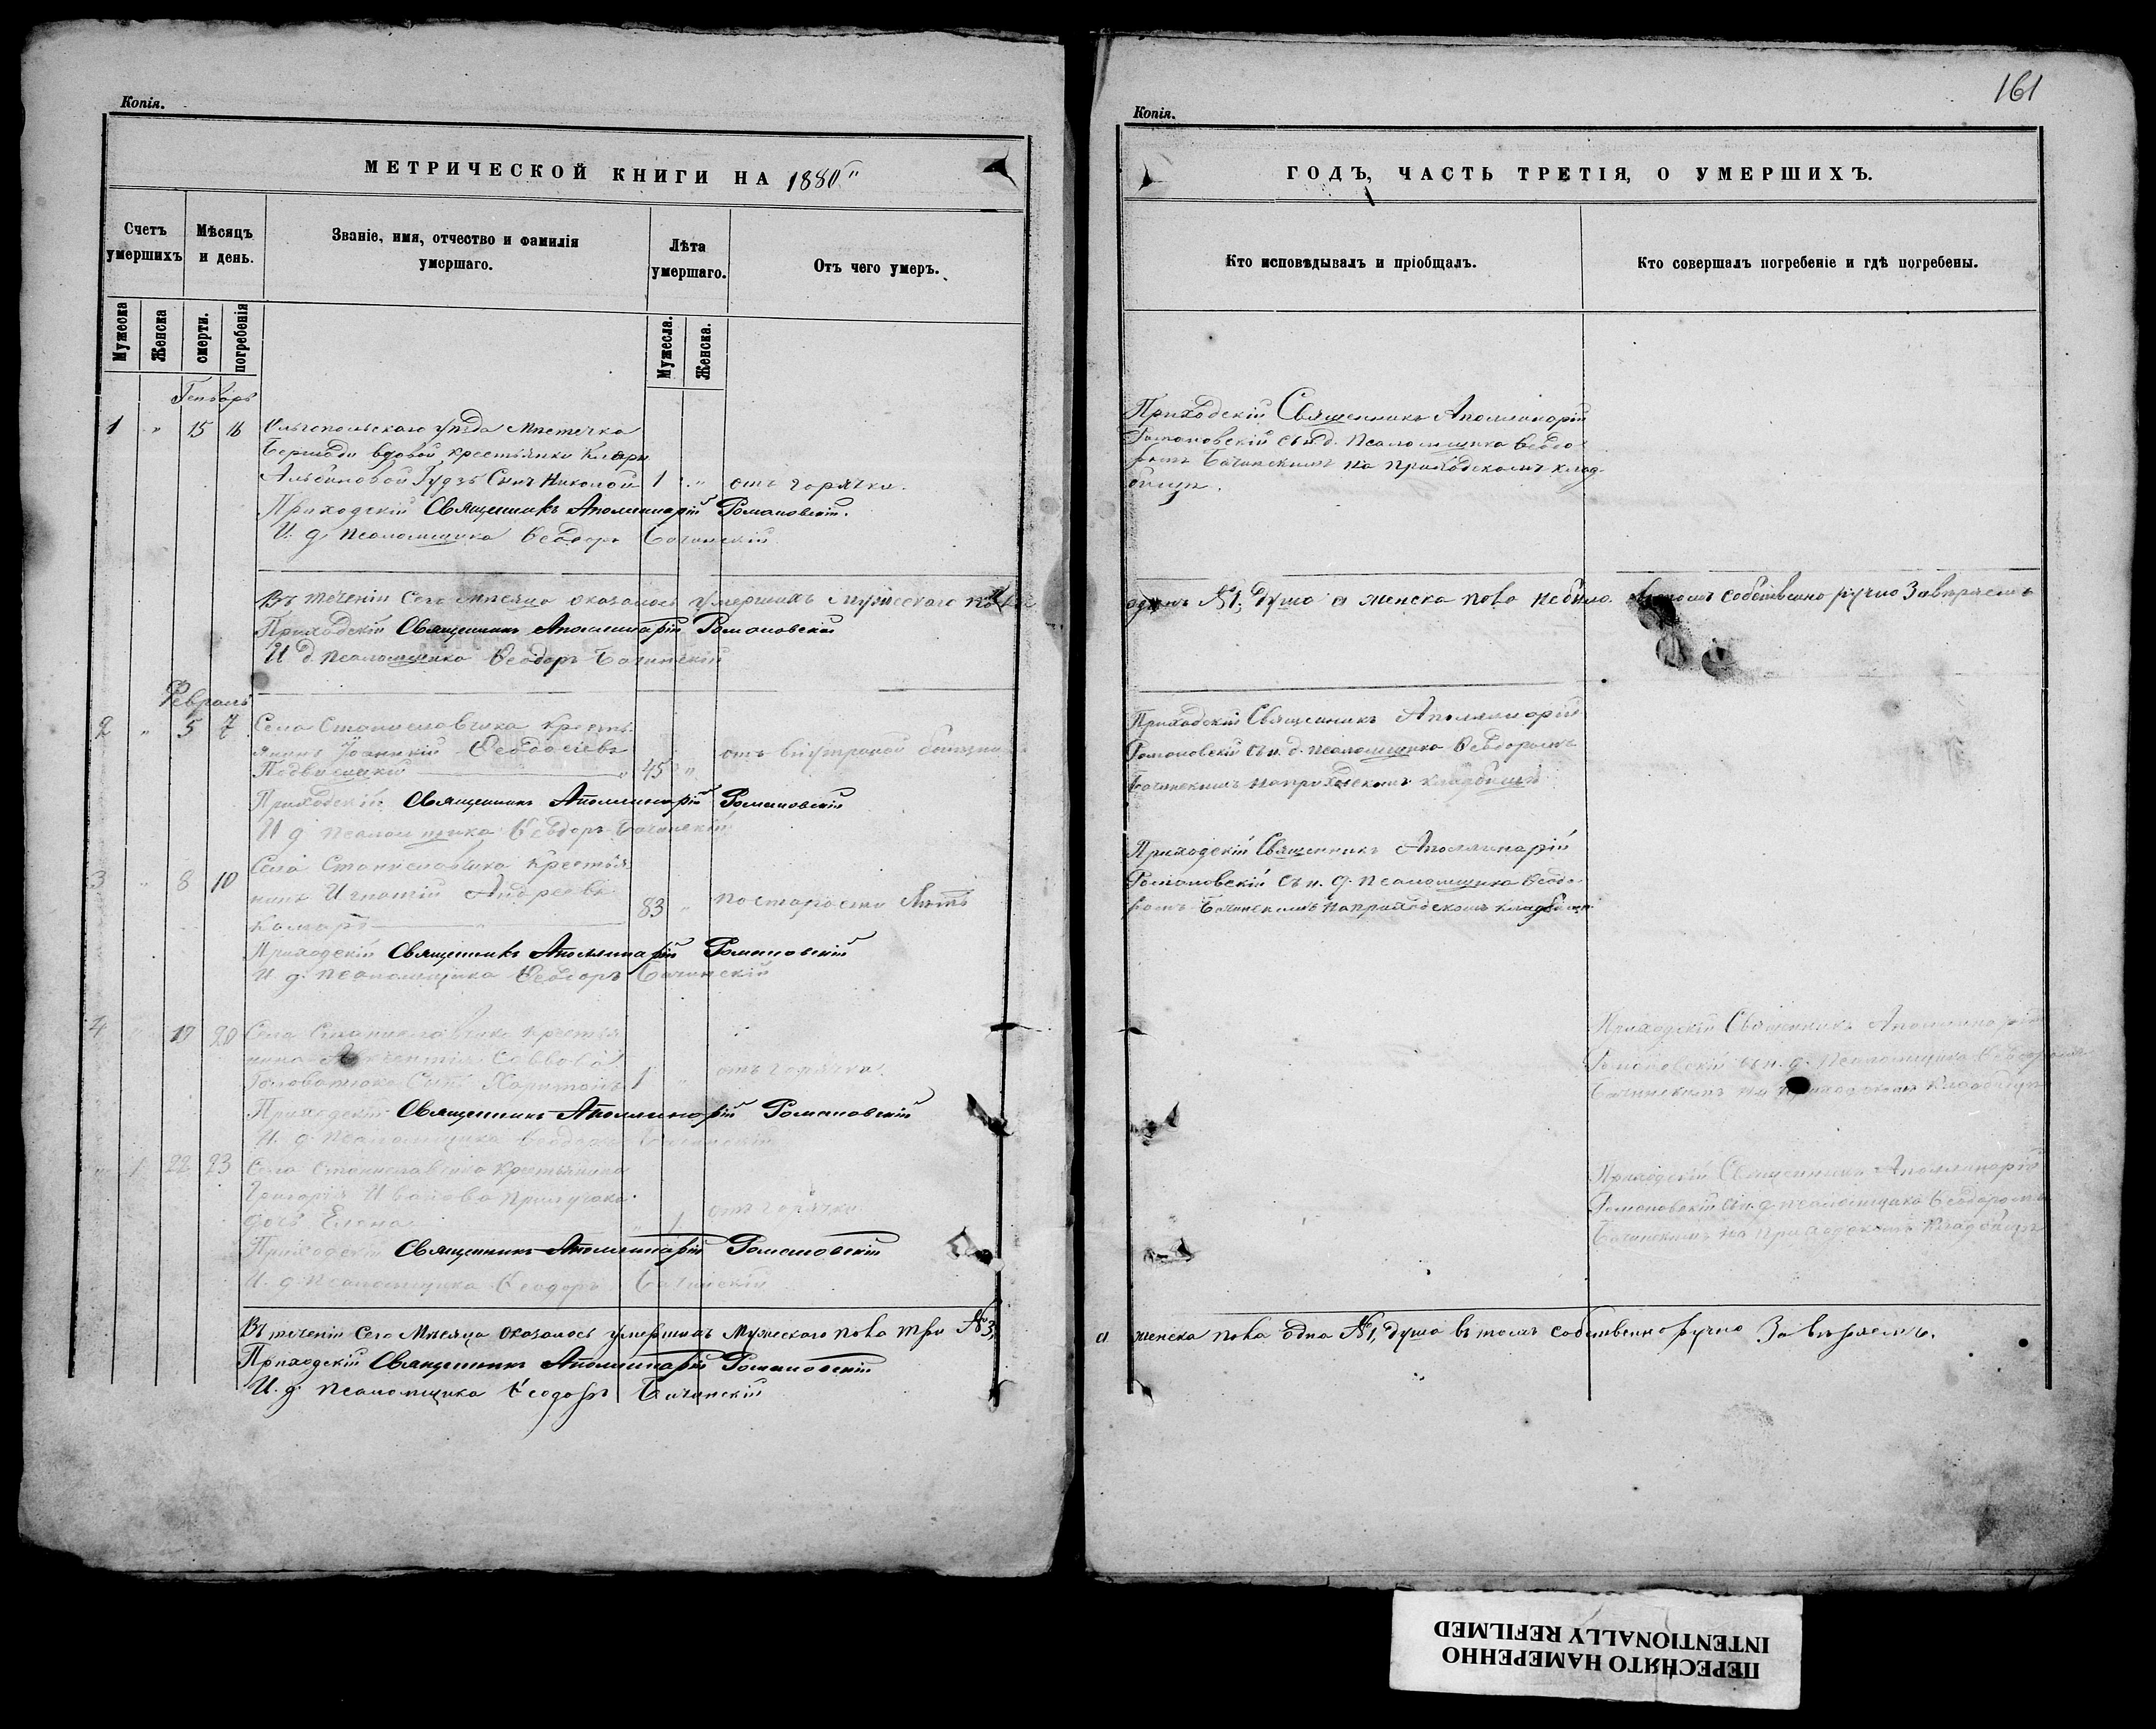 Копія.
МЕТРИЧЕСКОЙ КНИГИ НА 1880"
Счетъ умершихъ
Мѣсяцъ и день.
Званіе, имя, отчество и фамилія умершаго.
Лѣта умершаго.
Отъ чего умеръ.
Мужеска
Женска
смерти.
погребенія
Мужеска.
Женска.
Генварь
1 " 15 16 Ольгопольскаго уѣзда мѣстечка
Бершади вдовой крестьянки
Гудзь Сынъ Николай 1 " отъ горячки.
Приходскій Священникъ Аполлинарій Романовскій.
И. д. псаломщика Ѳеодоръ Бачинскій
Въ теченіи сего мѣсяца оказалось умершихъ мужескаго пола
Приходскій Священникъ Аполлинарій Романовскій
И д. псаломщика Ѳеодоръ Бачинскій
Февраль
2 " 5 7 Села Станиславчика кресть
янинъ Іоаникій Ѳеодосіевъ отъ внутреной болѣзни
Подвисоцкій " 45 "
Приходскій Священникъ Аполлинарій Романовскій
И д. псаломщика Ѳеодоръ Бачинскій
3 " 8 10 Села Станиславчика крестья
нинъ Игнатій Андреевъ 83 " по старости лѣтъ
Комаръ
Приходскій Священникъ Аполлинарій Романовскій
И. д. псаломщика Ѳеодоръ Бачинскій
4 20 Села Станиславчика крестья
нина Савво
Головатюка Сынъ Харитонъ 1 " отъ горячки.
Приходскій Священникъ Аполлинарій Романовскій
И. д. псаломщика Ѳеодоръ Бачинскій
" 1 22 23 Села Станиславчика крестьянина
Григорія Иванова
дочь Елена " 1 отъ горячки
Приходскій Священникъ Аполлинарій Романовскій
И. д. псаломщика Ѳеодоръ Бачинскій
Въ теченіи сего мѣсяца оказалось умершихъ мужескаго пола три №3,
Приходскій Священникъ Аполлинарій Романовскій
И. д. псаломщика Ѳеодоръ Бачинскій
161
Копія.
ГОДЪ, ЧАСТЬ ТРЕТІЯ, О УМЕРШИХЪ.
Кто исповѣдывалъ и пріобщалъ.
Кто совершалъ погребеніе и гдѣ погребены.
Приходскій Священникъ Аполлинарій
Романовскій съ и д. псаломщика Ѳеодо
ромъ Бачинскимъ на приходскомъ клад
бищѣ.
одинъ №1, душа а женска пола небыло въ томъ собственно ручно Завѣряемъ
Приходскій Священникъ Аполлинарій
Романовскій съ и. д. псаломщика Ѳеодоромъ
Бачинскимъ на приходскомъ кладбищѣ
Приходскій Священникъ Аполлинарій
Романовскій съ и. д. псаломщика Ѳеодо
ромъ Бачинскимъ на приходскомъ кладбищѣ
Приходскій Священникъ Аполлинарій
Романовскій съ и. д. псаломщика Ѳеодоромъ
Бачинскимъ на приходскомъ кладбищѣ
Приходскій Священникъ Аполлинарій
Романовскій съ и. д. псаломщика Ѳеодоромъ
Бачинскимъ на приходскомъ кладбищѣ
а женска пола одна №1, душа въ томъ собственно ручно Завѣряемъ.
ПЕРЕСНЯТО НАМЕРЕННО
INTENTIONALLY REFILMED